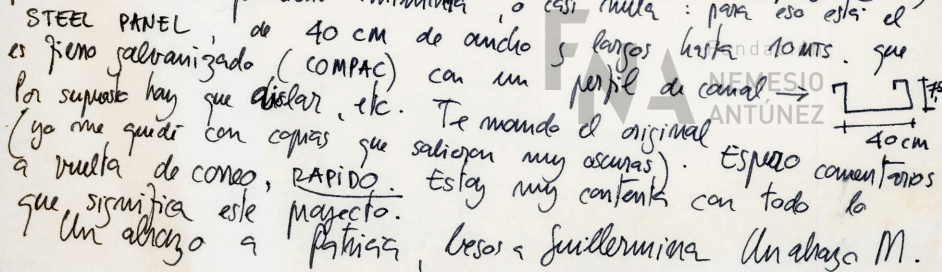 mínima, o casi nula: para eso está el
STEEL PANEL, de 40 CM de ancho y largos hasta 10 MTS. que
es fierro galvanizado (COMPAC) con un perfil de canal →
Por supuesto hay que aislar, etc. Te mando el original
(yo me quedé con copias que salieron muy oscuras). Espero comentarios
a vuelta de correo, RAPIDO. Estoy muy contenta con todo lo
que significa este proyecto.
Un abrazo a Patricia, besos a Guillermina Un abrazo M.
7,5
40 cm
Fundación
NEMESIO
ANTÚNEZ
FNA